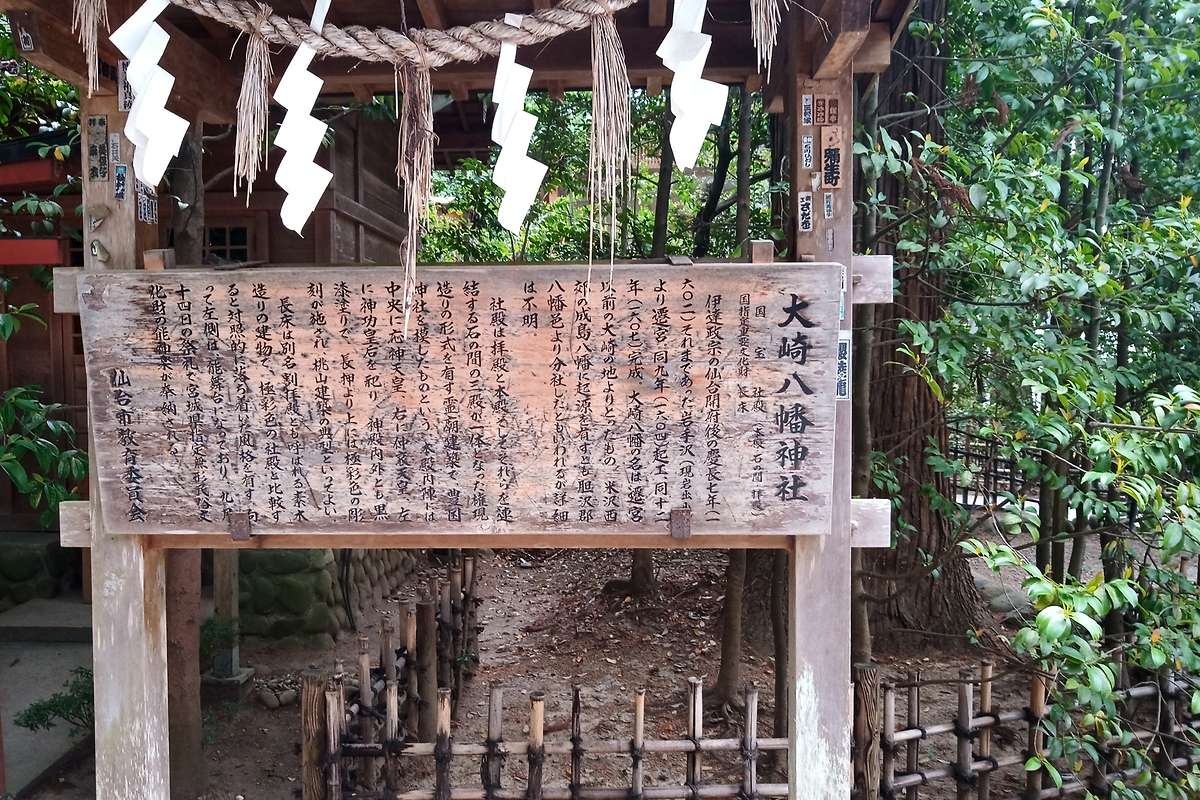 大崎八幡神社
国宝 社殿(本殿、石の間、拝殿)
国指定重要文化財 長床
伊達政宗が仙台開府後の慶長七年(一
六〇二)それまであった岩手沢(現岩出山)
より遷宮、同九年(一六〇四)起工、同十二
年(一六〇七)完成、大崎八幡の名は遷宮
以前の大崎の地よりとったもの。米沢西
郊の成島八幡に起源を有すとも胆沢郡
八幡邑より分社したともいわれるが詳細
は不明
社殿は拝殿と本殿、そしてそれらを連
結する石の間の三殿が一体となった権現
造りの形式を有す霊廟建築で、豊国
神社を模したものという。本殿内陣には
中央に応神天皇、右に仲哀天皇、左
に神功皇后を祀り、神殿内外とも黒
漆塗りで、長押より上には極彩色の彫
刻が施され、桃山建築の典型といってよい
長床は別名割拝殿とも呼ばれる素木
造りの建物で、極彩色の社殿と比較す
ると対照的な落ち着いた風格を有す。向
って左側は、能舞台になっており、九月
十四日の祭礼に宮城県指定無形民俗文
化財の能神楽が奉納される
仙台市教育委員会